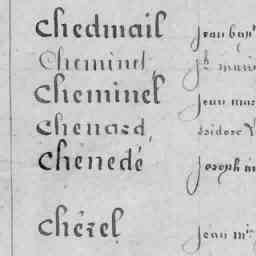 Chedmail jean bapt
Cheminel, jh marie
Cheminel jean mar
Chenard, isidore
Chénedé joseph
Chérel jean m